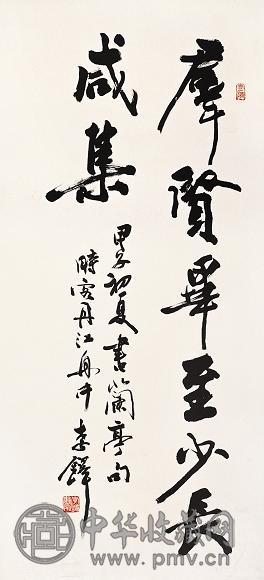 羣賢畢至少長
咸集
甲子初夏書蘭亭句
時客丹江舟中 李鐸
中华收藏网
www.pmv.cn